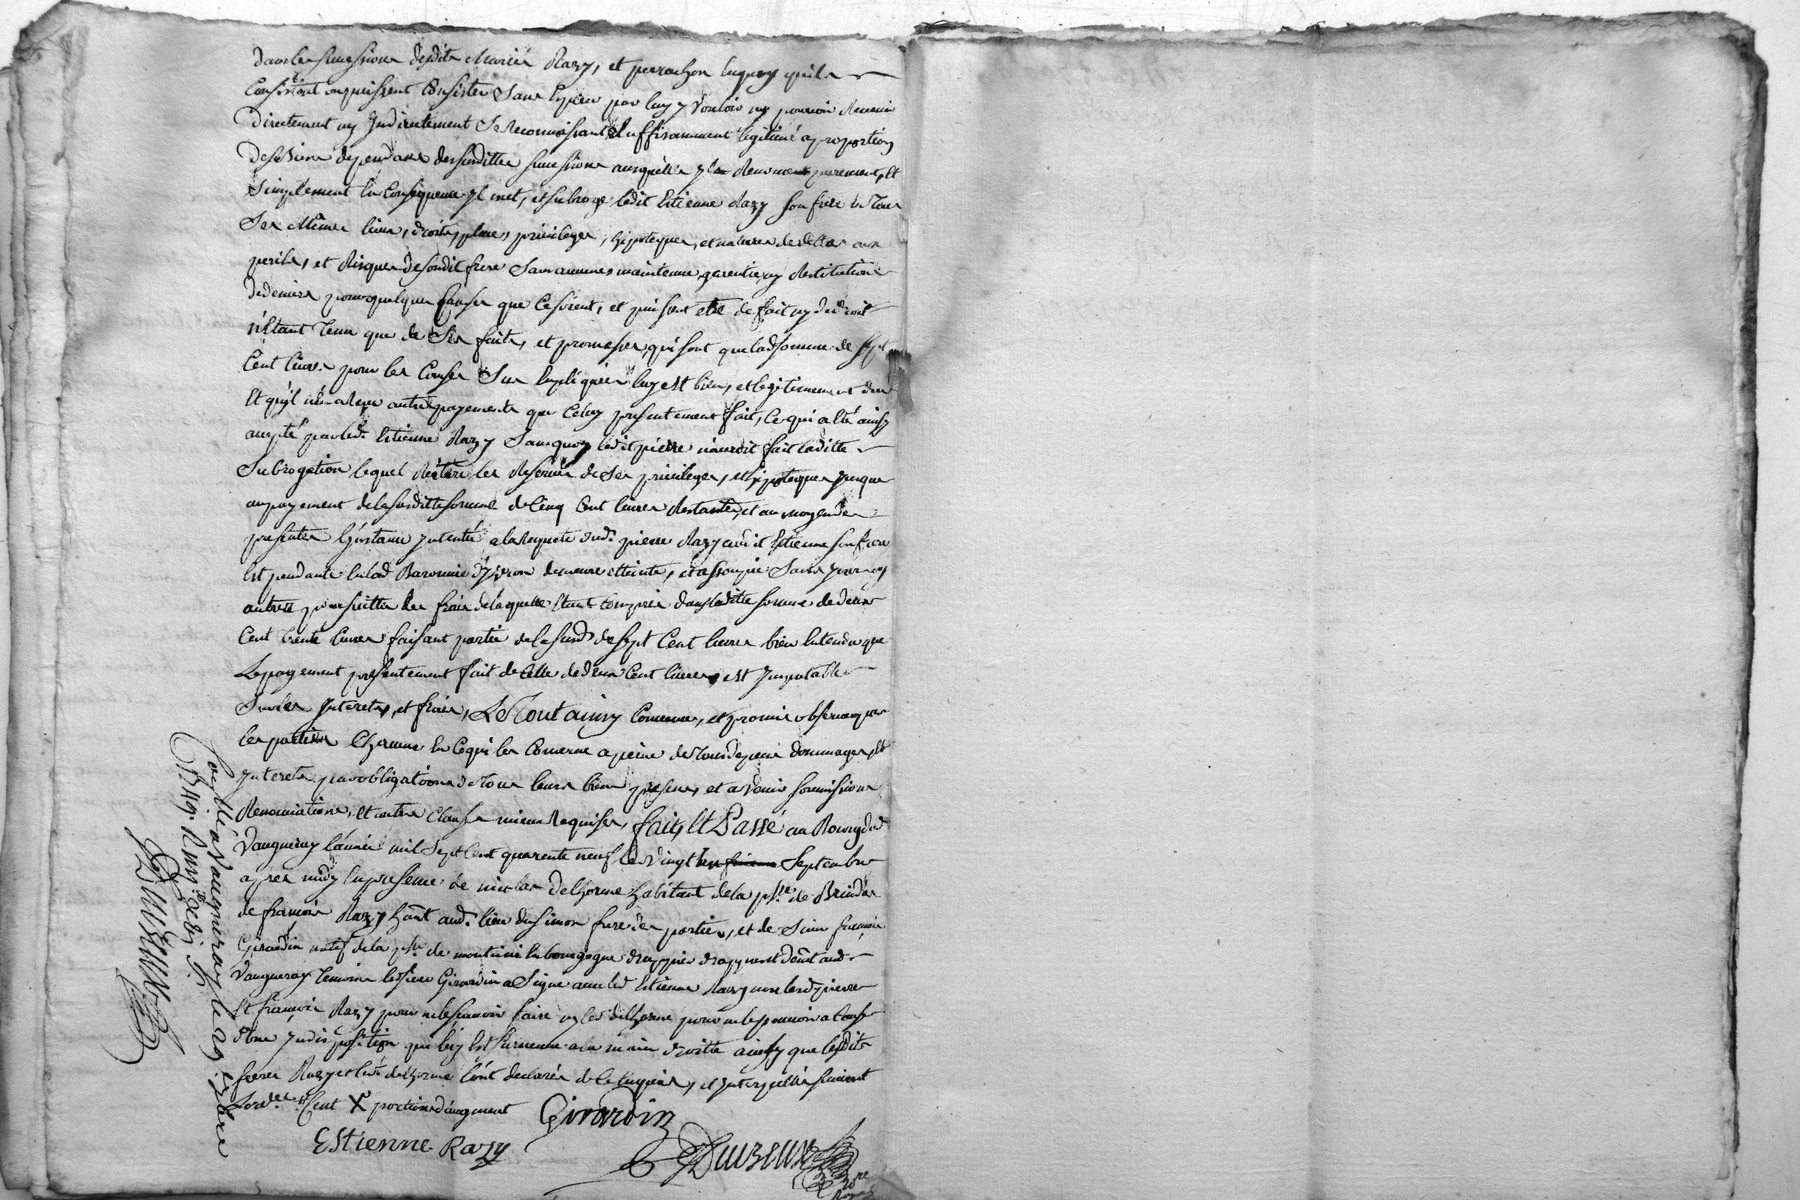 dans les successions desdits Marié Razy, et perrachon en quoy qu'ils
Consistent ou puissent Consister sans Espoir par luy y vouloir ny pouvoir Revenir
directement ny Indirectement se Reconnoissant suffisamment legitimé a proportion
des biens dependans des susdittes successions ausquelles yl Renonce purement, et
simplement En Consequence yl met, et subroge ledit Estienne Razy son frere en tous
ses Mêmes lieux, droits, place, privileges, hipoteques, et natures de dettes aux
perils, et Risques de sondit frere sans aucunes maintenue garentie ny Restitution
de deniers pour quelque Cause que Ce soient, et puissent etre de fait ny de droit
n'étant tenu que de ses faits, et promesses, qui sont que lad. somme de sept
Cent livres pour les Causes sus Expliquées luy est bien, et legitimement due
Et qu'il n'en a Reçu autre payements que Celuy presentement fait, Ce qui a été ainsy
accepté par led. Estienne Razy sans quoy ledit pierre n'auroit fait laditte
subrogation lequel Réitère les Reserves de ses privileges, et hipoteques jusques
au payement de la susditte somme de Cinq Cent livres Restante, et au moyen des
presentes l'jnstance jntentée a la Requete dud. pierre Razy aud. Estienne son frere
Est pendante en lad. Baronnie d'yzeron demeure etteinte, et assoupie sans pour ny
autres poursuittes les frais de laquelle étant Compris dans laditte somme de deux
Cent trente livres faisant partie de la susd. de sept Cent livres bien Entendu que
Le payement presentement fait de Celle de deux Cent livres, est jmputable
sur les jnterets, et frais, Le Tout ainsy Convenu, et promis observer par
les parties Chacune En Ce qui les Concerne a peine de tous depens dommages, et
jnterets par obligations de tous leurs biens presens, et a venir soumissions
Renonciations, et autres Clauses mieux Requises, fait, Et Passé au Bourg de
Vaugneray l'année mil sept Cent quarente neuf le vingt septembre
apres midy En presence de nicolas delhorme habitant de la psse. de Brindas
de francois Razy hant. aud. lieu du simon frere des parties, et de sieur francois
Girardin natif de la psse. de en bourgogne drappier drappant demt. aud.
Vaugneray temoins led. sieur Girardin a signé avec led. Estienne Razy non lesd. pierre
Et francois Razy pour ne scavoir faire ny led. delhorme pour ne le pouvoir a Cause
d'une jndisposition qui luy Est survenue a la main droitte ainsy que lesdits
freres Razy et led. delhorme l'ont declarés de Ce Enquis, et jnterpellés suivant
l'ordce. Cent X portions d'augment
Girardin
Estienne Razy
Duizeux
Nore
Royal
Conllé a Vaugneray le 29. 7bre
1749. Reçu
Duizeux